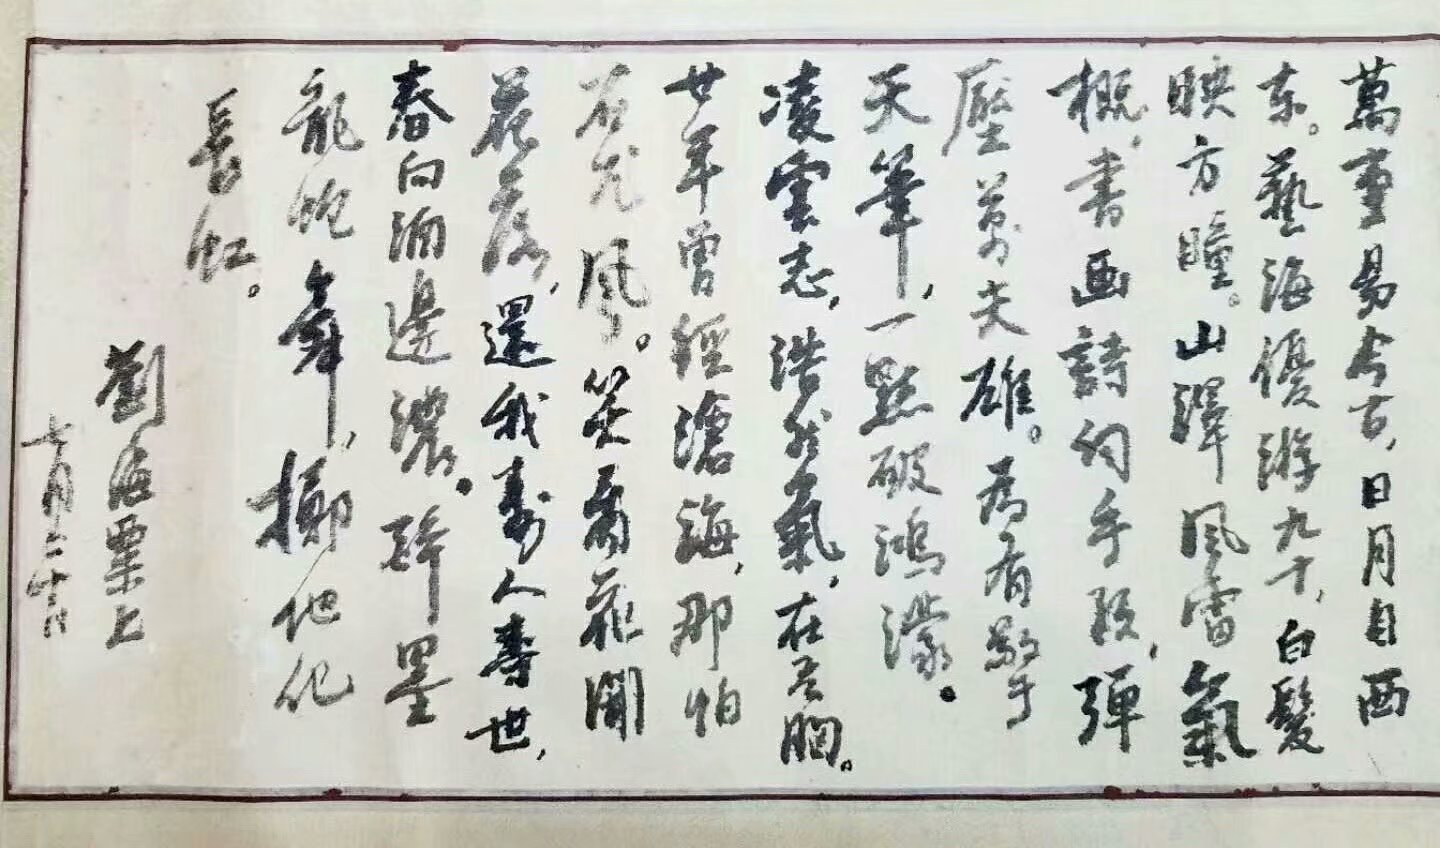 萬易今古，日月自西
东。藝海優游九十，白髮
映方瞳。山澤風雷氣
概，書画詩詞手段，彈
壓萬夫雄。为有擎
天筆，一點破鴻濛。
凌雲志，浩然氣，在吾胸。
廿年曾經滄海，那怕
石尤風。笑看花開
花落，還我壽人壽世，
春向酒邊濃。醉墨
龍蛇舞，擲地化
長虹。
劉海粟上
七月二十日